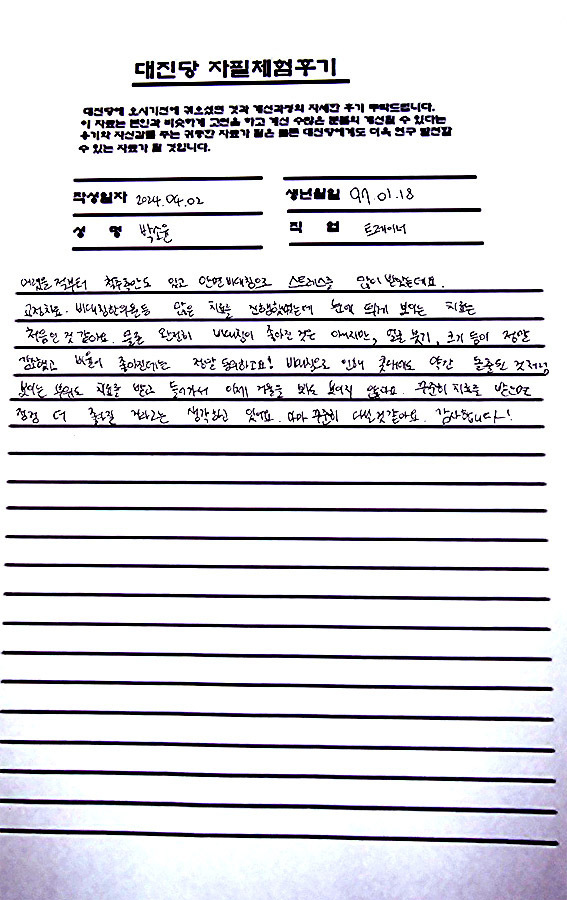 대진당 자필체험후기
대진당에 오시기전에 겪으셨던 것과 개선과정의 자세한 후기 부탁드립니다.
이 자료는 본인과 비슷하게 고민을 하고 계신 수많은 분들의 개선될 수 있다는
용기와 자신감을 주는 귀중한 자료가 됨은 물론 대진당에게도 더욱 연구 발전할
수 있는 자료가 될 것입니다.
작성일자 2024.04.02 생년월일 97.01.18
성 명 박소윤 직 업 트레이너
어렸을 적부터 척추측만도 있고 안면비대칭으로 스트레스를 많이 받았는데요.
교정치료, 비대칭 등 많은 치료를 진행했었는데 눈에 띄게 보이는 치료는
처음인 것 같아요. 물론 완전히 비대칭이 좋아진 것은 아니지만, 얼굴 붓기, 크기 등이 정말
감소했고 비율이 좋아진데는 정말 동의하고요! 비대칭으로 인해 콧대에도 약간 돌출된 것처럼
보이는 부위도 치료를 받고 들어가서 이제 거울을 봐도 보이지 않아요. 꾸준히 치료를 받으면
점점 더 좋아질 거라고는 생각하고 있어요. 아마 꾸준히 다닐것 같아요. 감사합니다!